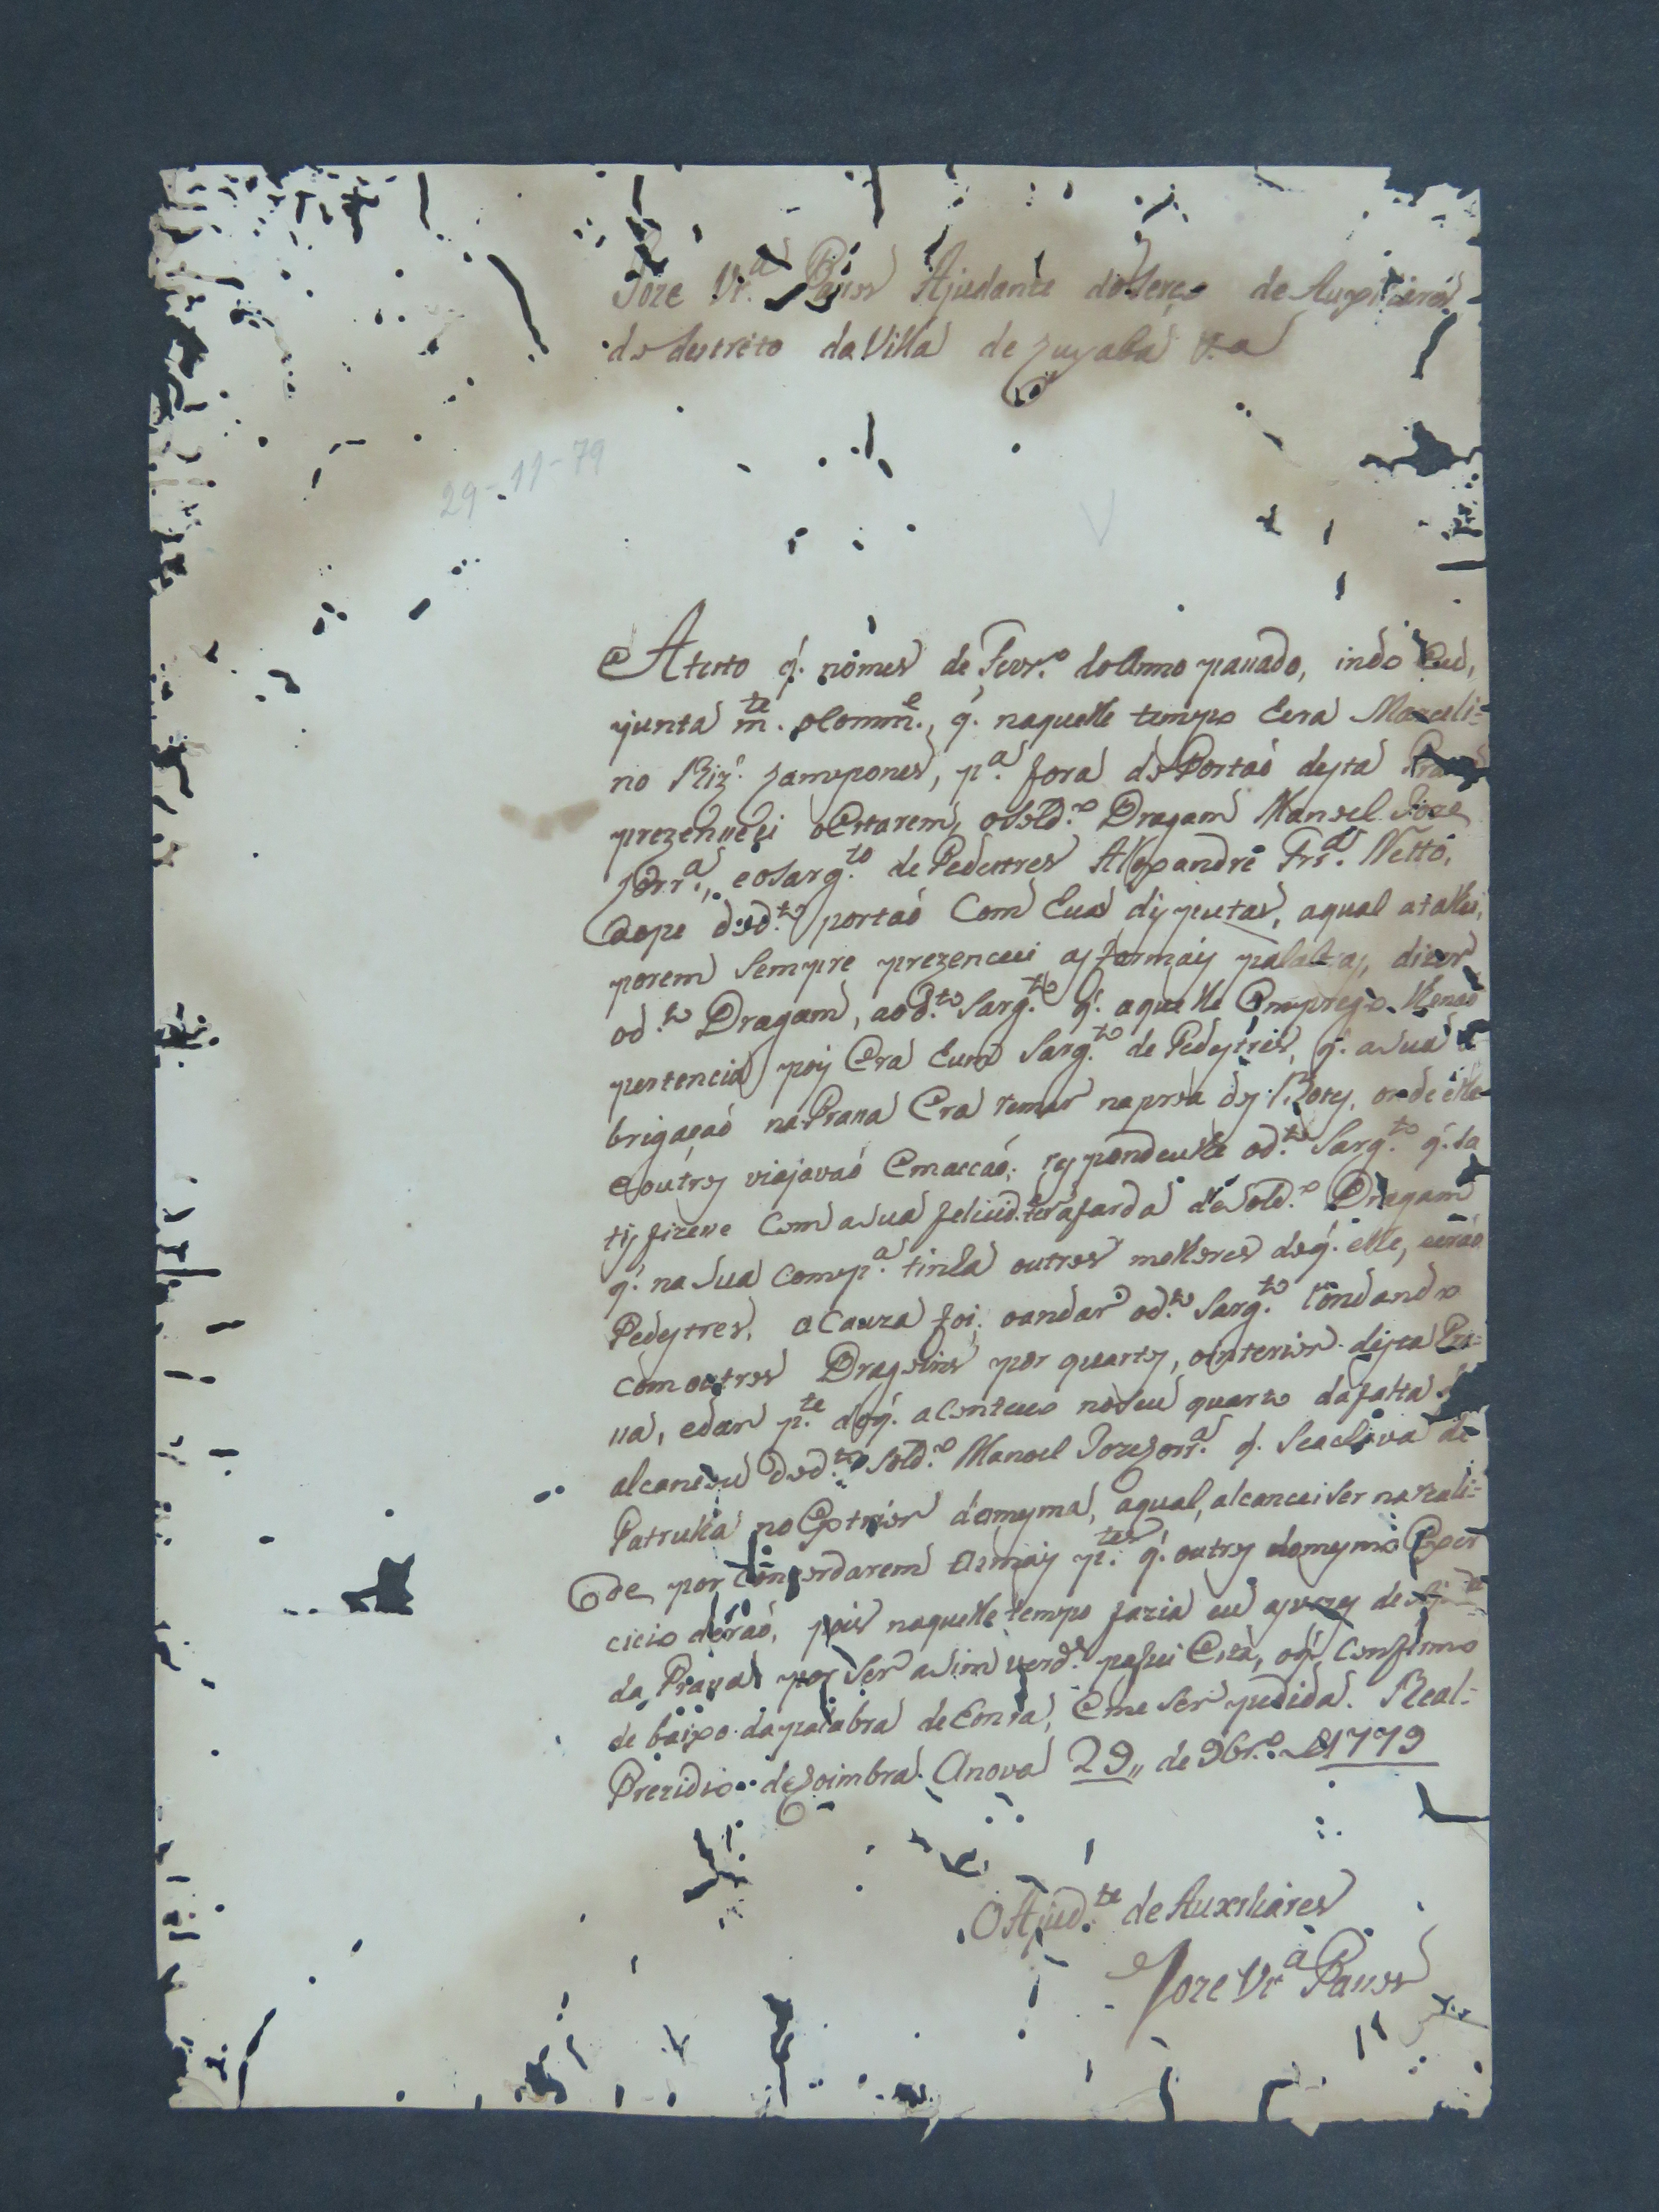 Joze Vr.ª Passos Ajudante do terço de Auxiliares
do destrito da Villa de Cuyabá V.a
29-11-79
Atesto q. nomes de Fevr.º do Anno passado, indo Eu,
junta m.te o Comm.e, q. naquelle tempo Era Marceli=
no Riz.º Campones, p.ª fora do Portaó desta
prezenciei o Estarem, o Sold.º Dragam Manoel Joze
Corr.ª, e o Sarg.to de Pedestres Alexandre Frr.ª Netto,
do d.to portaó Com huas disputas, aqual atalhei,
porem Sempre prezenciei as formais palabras, dizer
o d.to Dragam, ao d.to Sarg.to q. aquelle Emprego lhe naó
pertencia pois Era hum Sarg.to de Pedestres, q. a Sua o
brigaçaó na Prassa Era remar na proa dos Botes, onde elle
e outros viajavaó Respondeulhe o d.to Sarg.to q.
tisfizece Com a Sua felicid.e ter a farda de Sold.º Dragam
q. na Sua Comp.ª tinha outros melhores do q. elle,
Pedestres. a Cauza foi, o andar o d.to Sarg.to Rondando
Com outros Dragoins por quartos, o interior desta Pra=
ssa, e dar p.te do q. aConteceo no Seu quarto da falta
alcançou do d.to Sold.º Manoel Joze Corr.ª q. Se achava de
Patrulha no Exterior da mesma, aqual, alcancei Ser na Reali=
de por Concordarem as mais p.tes q. outros do mesmo Exer
cicio deraó, pois naquelle tempo fazia eu as vezes de Aj.te
da Prassa por Ser asim verd.e pasei Esta, o q. Confirmo
de baixo da palabra de Honra, Eme Ser pedida. Real=
Prezidio de Coimbra Anova 29,, de 9br.º de 1779
O Ajud.te de Auxiliares
Joze Vr.ª Passos